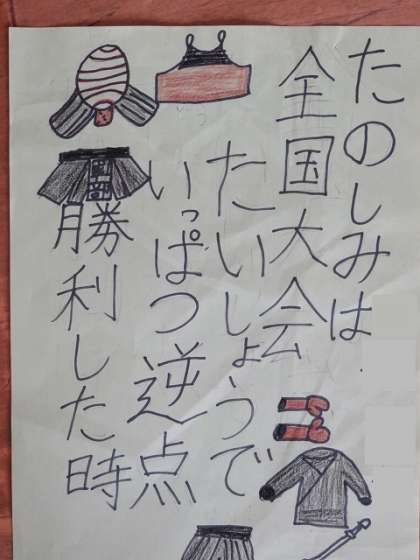 たのしみは
全国大会
たいしょうで
いっぱつ逆点
勝利した時